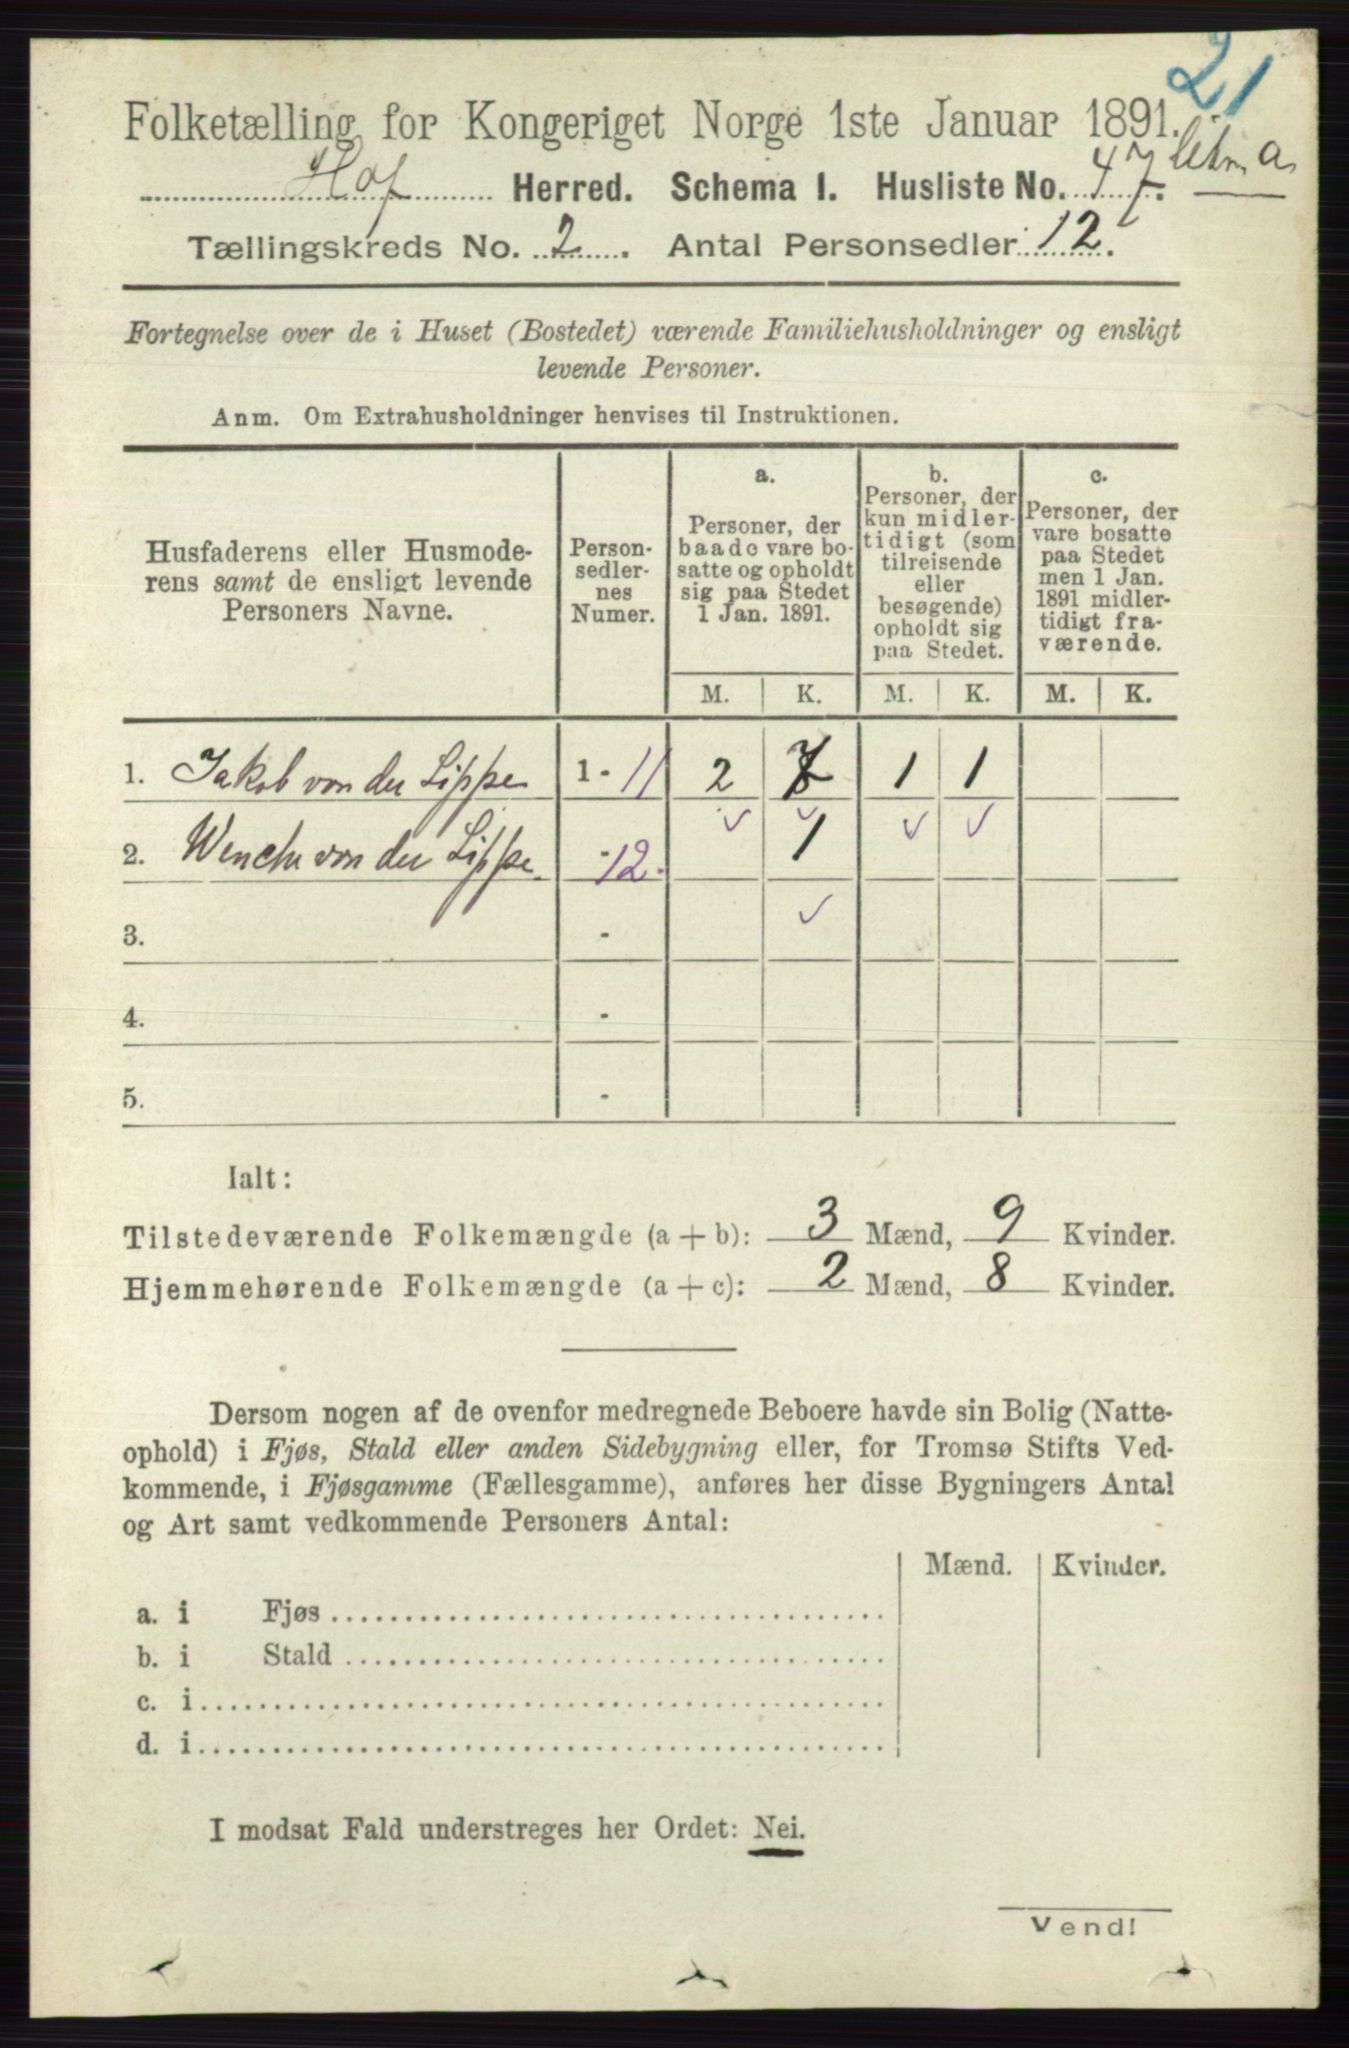 21
Folketælling for Kongeriget Norge 1ste Januar 1891.
Hof Herred. Schema I. Husliste No. 47. Litr. a
Tællingskreds No. 2. Antal Personsedler 12.
Fortegnelse over de i Huset (Bostedet) værende Familiehusholdninger og ensligt
levende Personer.
Anm. Om Extrahusholdninger henvises til Instruktionen.
Husfaderens eller Husmode-
rens samt de ensligt levende
Personers Navne.
Person-
sedler-
nes
Numer.
a.
Personer, der
baade vare bo-
satte og opholdt
sig paa Stedet
1 Jan. 1891.
b.
Personer, der
kun midler-
tidigt (som
tilreisende
eller
besøgende)
opholdt sig
paa Stedet.
c.
Personer, der
vare bosatte
paa Stedet
men 1 Jan.
1891 midler-
tidigt fra-
værende.
M. K. M. K. M. K.
1. Jakob von der Lippe 1 - 11 2 7 1 1
2. Wenche von der Lippe. - 12. 1
3. -
4. -
5. -
Ialt:
Tilstedeværende Folkemængde (a + b): 3 Mænd, 9 Kvinder.
Hjemmehørende Folkemængde (a + c): 2 Mænd, 8 Kvinder.
Dersom nogen af de ovenfor medregnede Beboere havde sin Bolig (Natte-
ophold) i Fjøs, Stald eller anden Sidebygning eller, for Tromsø Stifts Ved-
kommende, i Fjøsgamme (Fællesgamme), anføres her disse Bygningers Antal
og Art samt vedkommende Personers Antal:
Mænd. Kvinder.
a. i Fjøs
b. i Stald
c. i
d. i
I modsat Fald understreges her Ordet: Nei.
Vend!